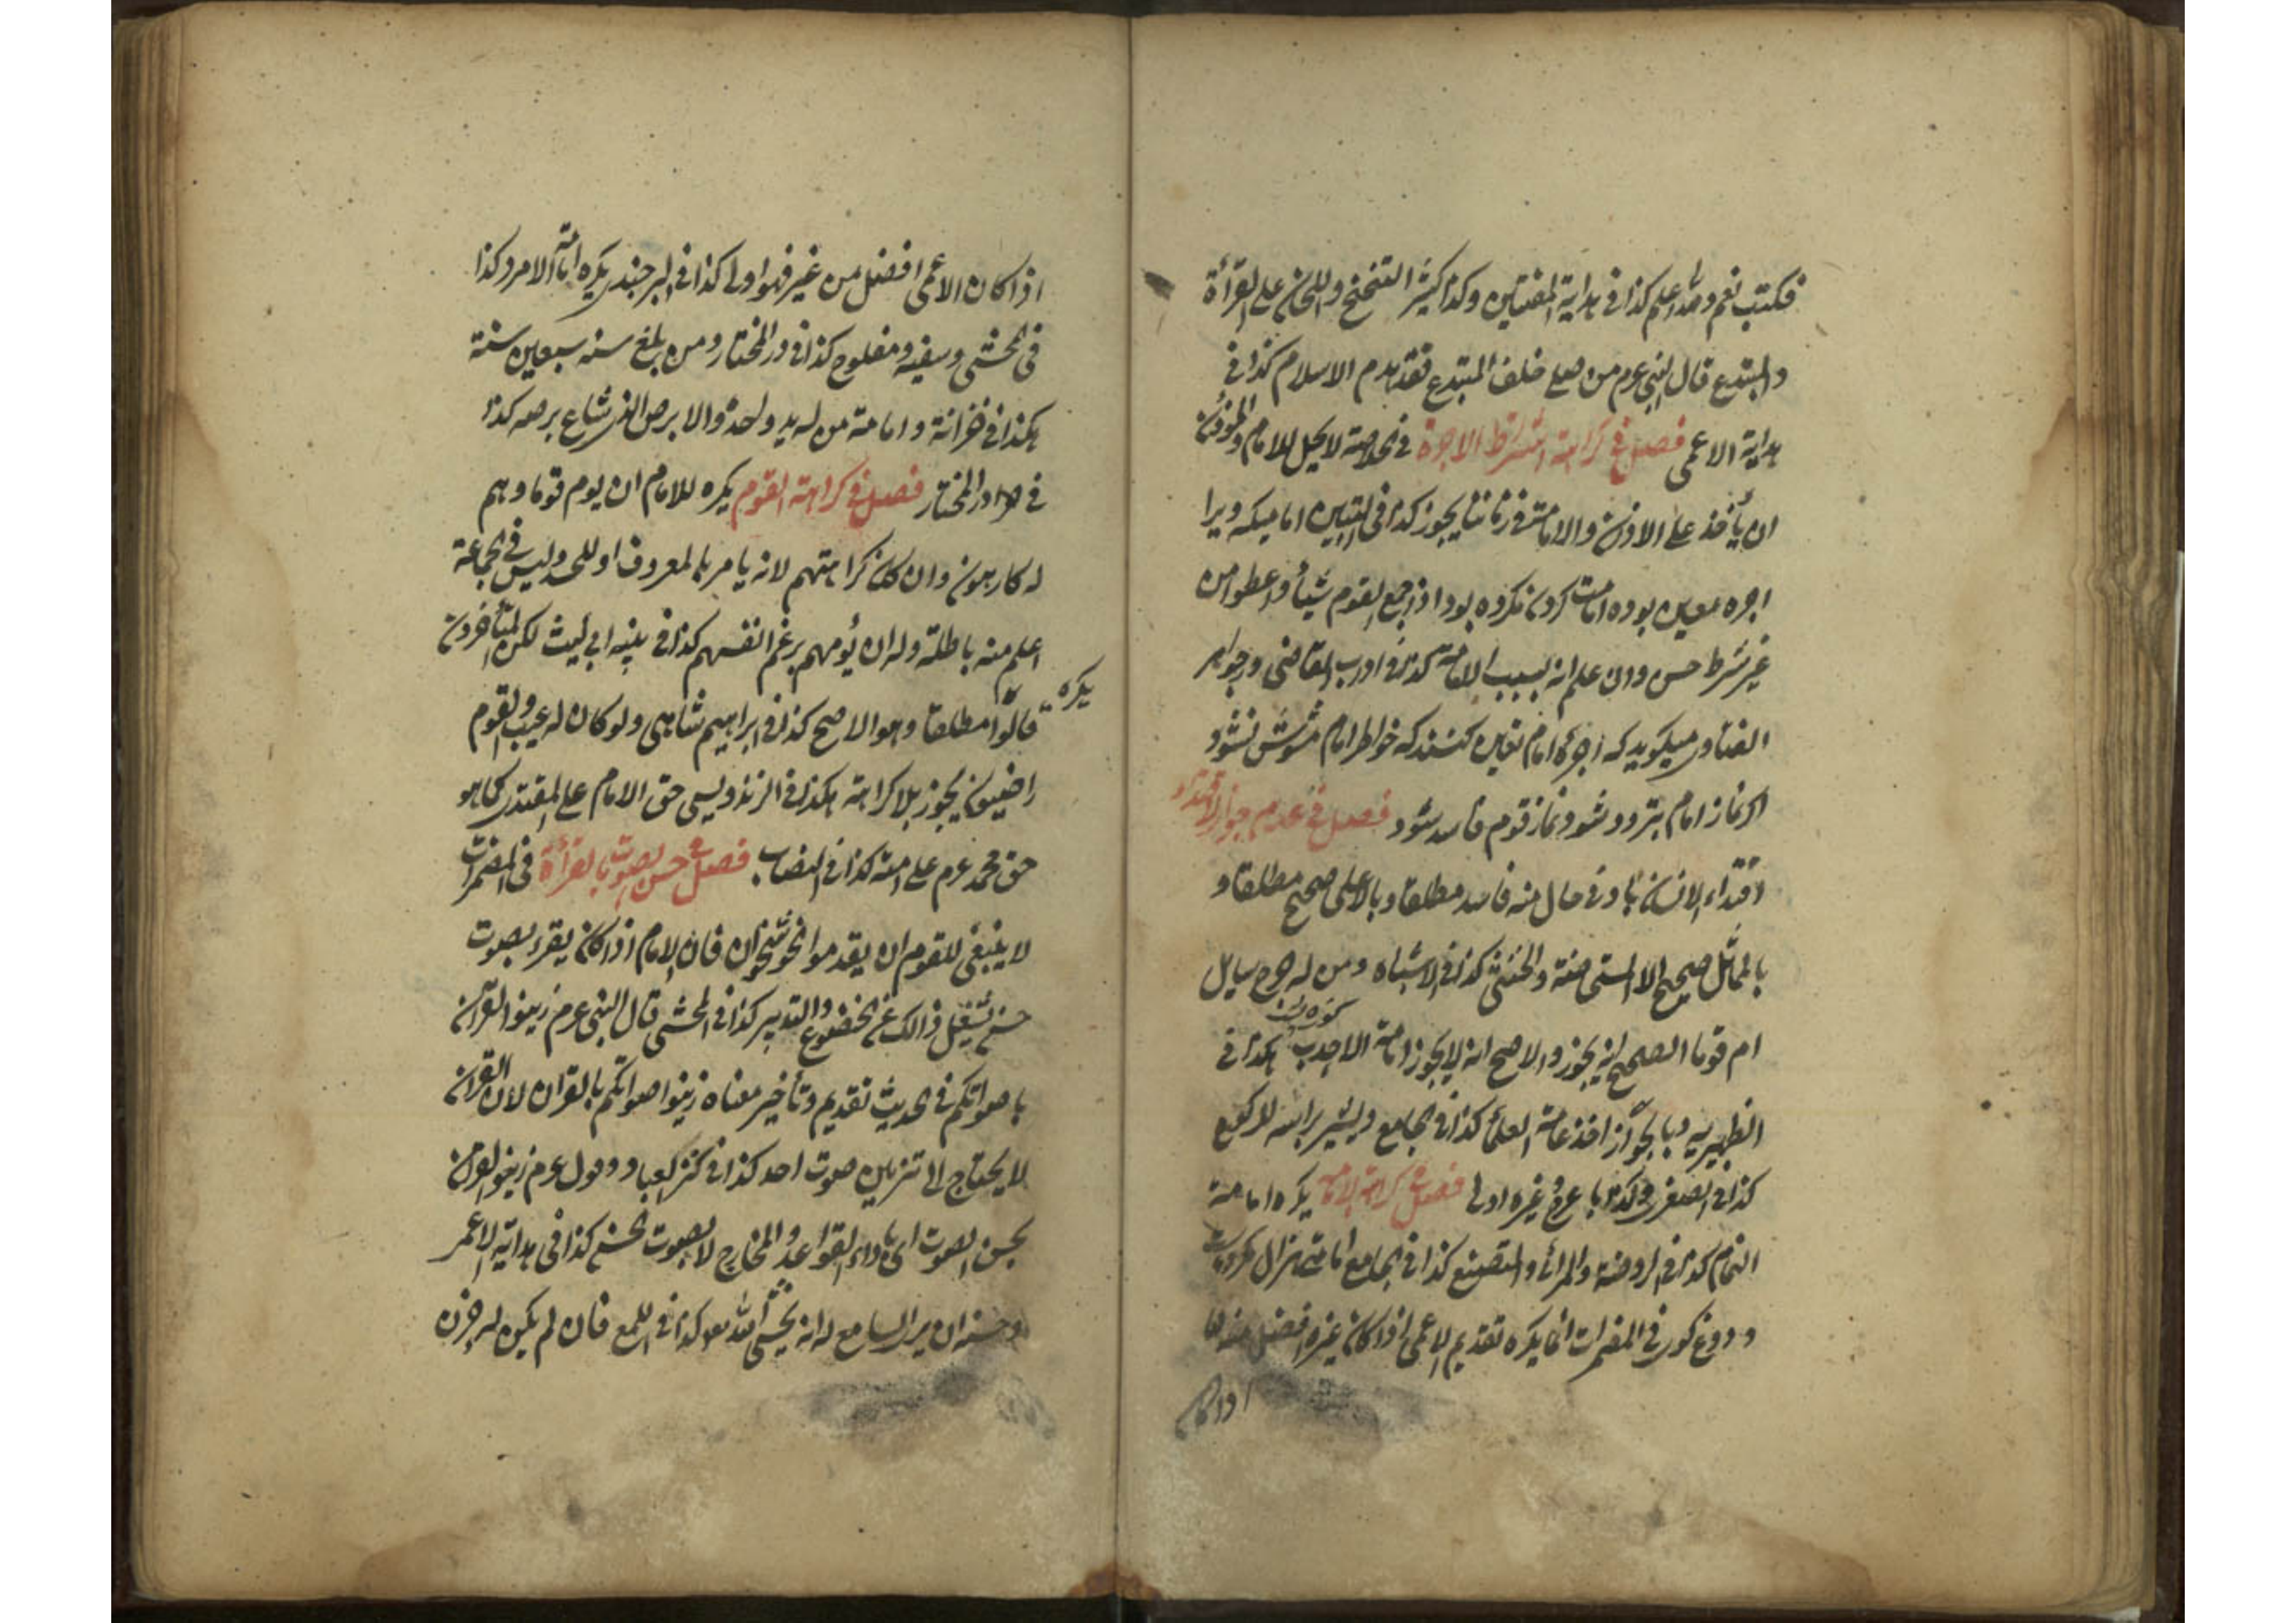 فكتب نعم والله اعلم كذا فى هداية المفتين وكذا كثير التنحنح واللحان على القرأة
والمبتدع قال النبى عرم من صلى خلف المبتدع فقد هدم الاسلام كذا فى
هداية الاعمى فصل فى كراهة اشتراط الاجرة فى الخلاصة لا يحل للامام والمؤذن
ان يأخذ على الاذان والامامة فى زماننا يجوز كذا فى التبيين اما ميكه ويرا
اجره معين بوده امامت كردن مكروه بود اذا جمع القوم شيأ واعطوا من
غير شرط حسن وان علم انه بسبب الامامة كذا فى ادب القاضى وجواهر
الفتاوى ميكويد كه اجرۀ امام تعين كنند كه خواطر امام مشوش نشود
اكر نماز امام بتردد شود نماز قوم فاسد شود فصل فى عدم جواز الاقتداء
اقتداء الانسان بادنى حال منه فاسد مطلقا وبالاعلى صحيح مطلقا و
بالمماثل صحيح الا المستحاضة والخنثى كذا فى الاشباه ومن له جرح سايل
كوزه پشت
ام قوما الصحيح انه يجوز والاصح انه لا يجوز امامة الاحدب هكذا فى
الظهيريه وبالجواز اخذ عامة العلمأ كذا فى الجامع ويشير براسه للركوع
كذا فى الصغرى وكذا باعرج وغيره اولى فصل فى كراهة الامامة يكره امامة
النمام كذا فى الروضة والمرائى والمتصنع كذا فى الجامع امامت هزال مكروهست
و دروغ كوى فى المضمرات انما يكره تقديم الاعمى اذا كان غيره افضل منه اما
اذا كان
اذا كان الاعمى افضل من غيره فهو اولى كذا فى البرجندى يكره امامة الامرد وكذا
فى المحشى وسفيه ومفلوج كذا فى در المختار ومن بلغ سنه سبعين سنة
هكذا فى خزانة وامامة من له يد واحدة والابرص الذى شاع برصه كذا
فى در المختار فصل فى كراهة القوم يكره للامام ان يوم قوما وهم
له كارهون وان كان كراهتهم لانه يامر بالمعروف او للحسد وليس فى الجماعة
اعلم منه باطلة وله ان يؤمهم برغم انفسهم كذا فى تنبيه ابى ليث لكن المتأخرون
يكره
قالوا مطلقا وهو الاصح كذا فى ابراهيم شاهى ولو كان له عيب والقوم
راضيون يجوز بلا كراهة هكذا فى الزندويسى حق الامام على المقتدى كما هو
حق محمد عرم على امته كذا فى النصاب فصل فى حسن الصوت بالقرأة فى المضمرات
لا ينبغى للقوم ان يقدموا الخوشخوان فان الامام اذا كان يقرء بصوت
حسن تشغل ذالك عن الخضوع والتدبير كذا فى المحشى قال النبى عرم زينوا القرآن
باصواتكم فى الحديث تقديم وتأخير معناه زينوا اصواتكم بالقرآن لان القرآن
لا يحتاج الى تزيين صوت احد كذا فى كنز العباد وقول عرم زينوا القرآن
بحسن الصوت اى باداء القواعد والمخارج لا بصوت محسن كذا فى هداية الاعمى
وحسنه ان يرى السامع له انه يخشى الله هو كذا فى اللمع فان لم يكن له حزن